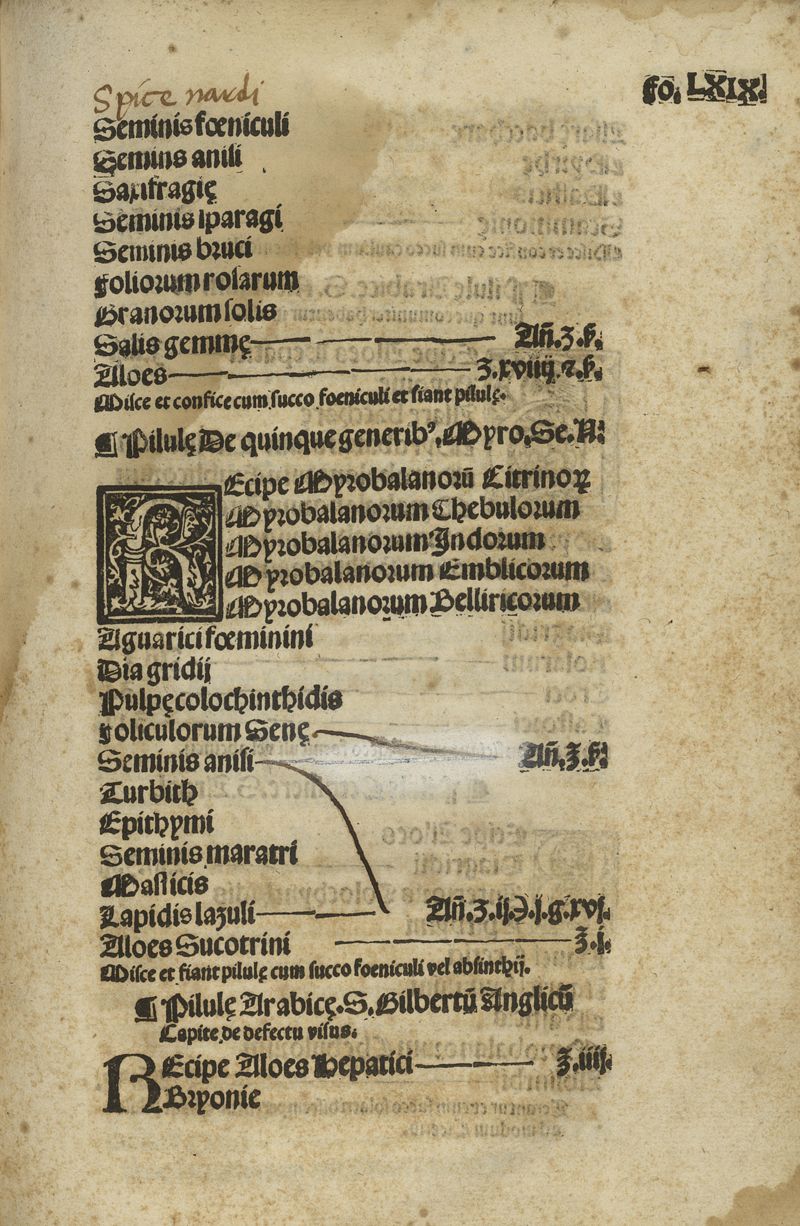 fo. LXIX.
Spice nardi
Seminis fœniculi
Semins anili
Saxifragię
Seminis sparagi
Seminis brusci
Foliorum rosarum
Granorum solis
Salis gemmę Añ.ʒ.ß.
Aloes ʒ.xviiij.⁊.ß.
Misce et confice cum succo foeniculi et fiant pilulę.
¶ Pilulę De quinque generib⁹. Myro. Se. N:
REcipe Myrobalanorū Citrinoꝝ
Myrobalanorum Chebulorum
Myrobalanorum Indorum
Myrobalanorum Emblicorum
Myrobalanorum Belliricorum
Aguarici fœminini
Dia gridij
Pulpę colochinthidis
Foliculorum Senę
Seminis anisi Añ.ʒ.ß.
Turbith
Epithymi
Seminis maratri
Masticis
Lapidis lazuli Añ.ʒ.ij.℈.j.g.xvj.
Aloes Sucotrini ℥.j.
Misce et fiant pilulę cum succo foeniculi vel absinthij.
¶ Pilulę Arabicę. S. Gilbertū Anglicū
Capite de defectu visus.
REcipe Aloes Hepatici ℥.iiij.
Bryonie